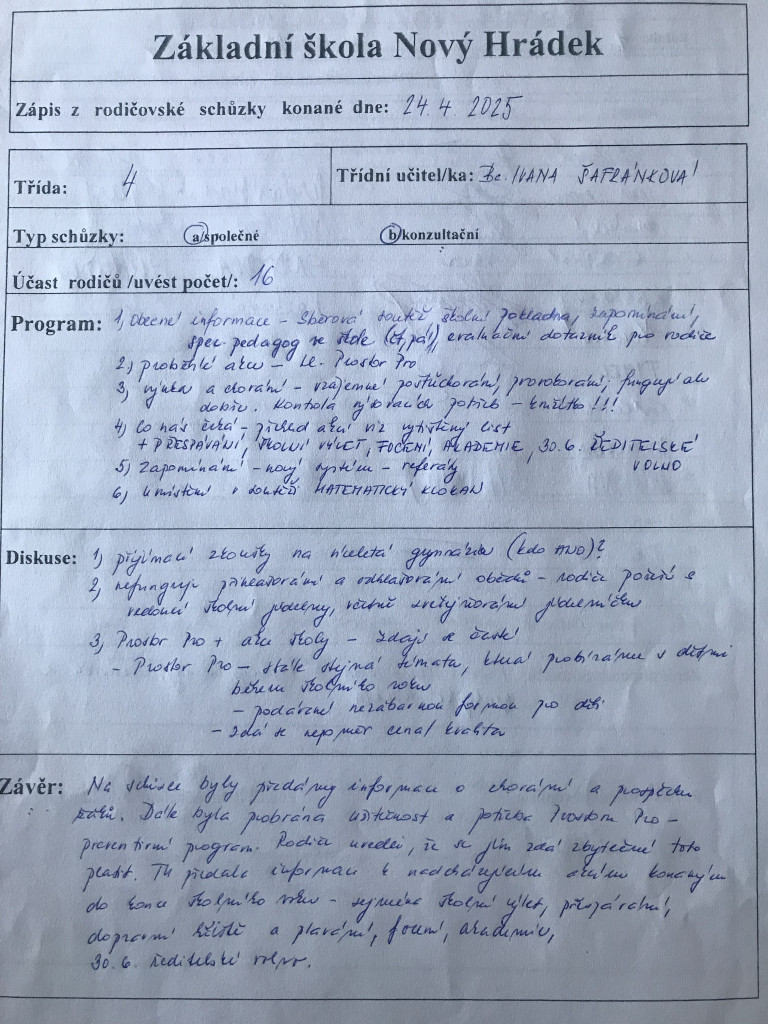 Základní škola Nový Hrádek
Zápis z rodičovské schůzky konané dne: 24. 4. 2025
Třída: 4
Třídní učitel/ka: Bc. IVANA ŠAFRÁNKOVÁ
Typ schůzky: a/společné b/konzultační
Účast rodičů /uvést počet/: 16
Program: 1, Obecné informace – Sběrová soutěž školní pokladna, zapomínání,
spec. pedagog ve škole (čt, pá), evaluační dotazník pro rodiče
2, proběhlé akce – Prostor Pro
3, výuka a chování – vzájemné postrkování, provokování, fungují ale
dobře. Kontrola výukových potřeb – kružítko!!!
4, Co nás čeká – přehled akcí viz vytištěný list
+ PŘESPÁVÁNÍ, ŠKOLNÍ VÝLET, FOCENÍ, AKADEMIE, 30. 6. ŘEDITELSKÉ
VOLNO
5) Zapomínání – nový systém – referáty
6, Umístění v soutěži MATEMATICKÝ KLOKAN
Diskuse: 1, přijímací zkoušky na víceletá gymnázia (kdo ANO)?
2, nefunguje přihlašování a odhlašování obědů – rodiče pořeší s
vedoucí školní jídelny, včetně zveřejňování jídelníčku
3, Prostor Pro + akce školy – zdají se časté
– Prostor Pro – stále stejná témata, která probíráme s dětmi
během školního roku
– podávané nezábavnou formou pro děti
– zdá se nepoměr cena/kvalita
Závěr: Na schůzce byly předány informace o chování a prospěchu
žáků. Dále byla probrána užitečnost a potřeba Prostoru Pro –
preventivní program. Rodiče uvedli, že se jim zdá zbytečné toto
platit. TU předala informace k nadcházejícím akcím konaným
do konce školního roku – zejména školní výlet, přespávání,
dopravní hřiště a plavání, focení, akademie,
30. 6. ředitelské volno.